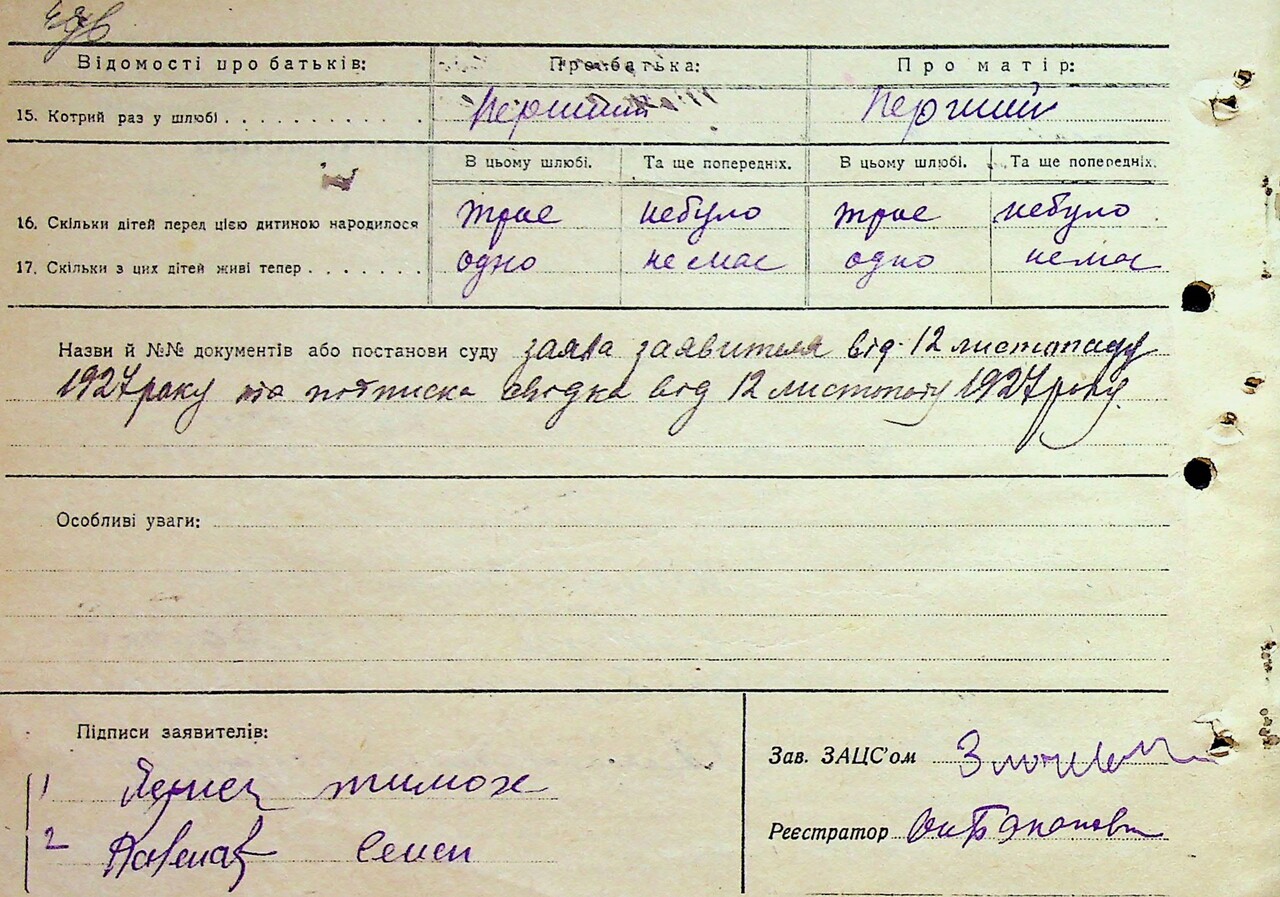 Відомості про батьків: Про батька: Про матір:
15. Котрий раз у шлюбі Перший Перший
В цьому шлюбі. Та ще попередніх. В цьому шлюбі. Та ще попередніх.
16. Скільки дітей перед цією дитиною народилося троє небуло троє небуло
17. Скільки з цих дітей живі тепер одно немає одно немає
Назви й №№ документів або постанови суду заява заявителя від 12 листопаду
1927 року та подписка свідка від 12 листопаду 1927 року
Особливі уваги:
Підписи заявителів:
1 тимох
2 Семен
Зав. ЗАЦС'ом
Реєстратор